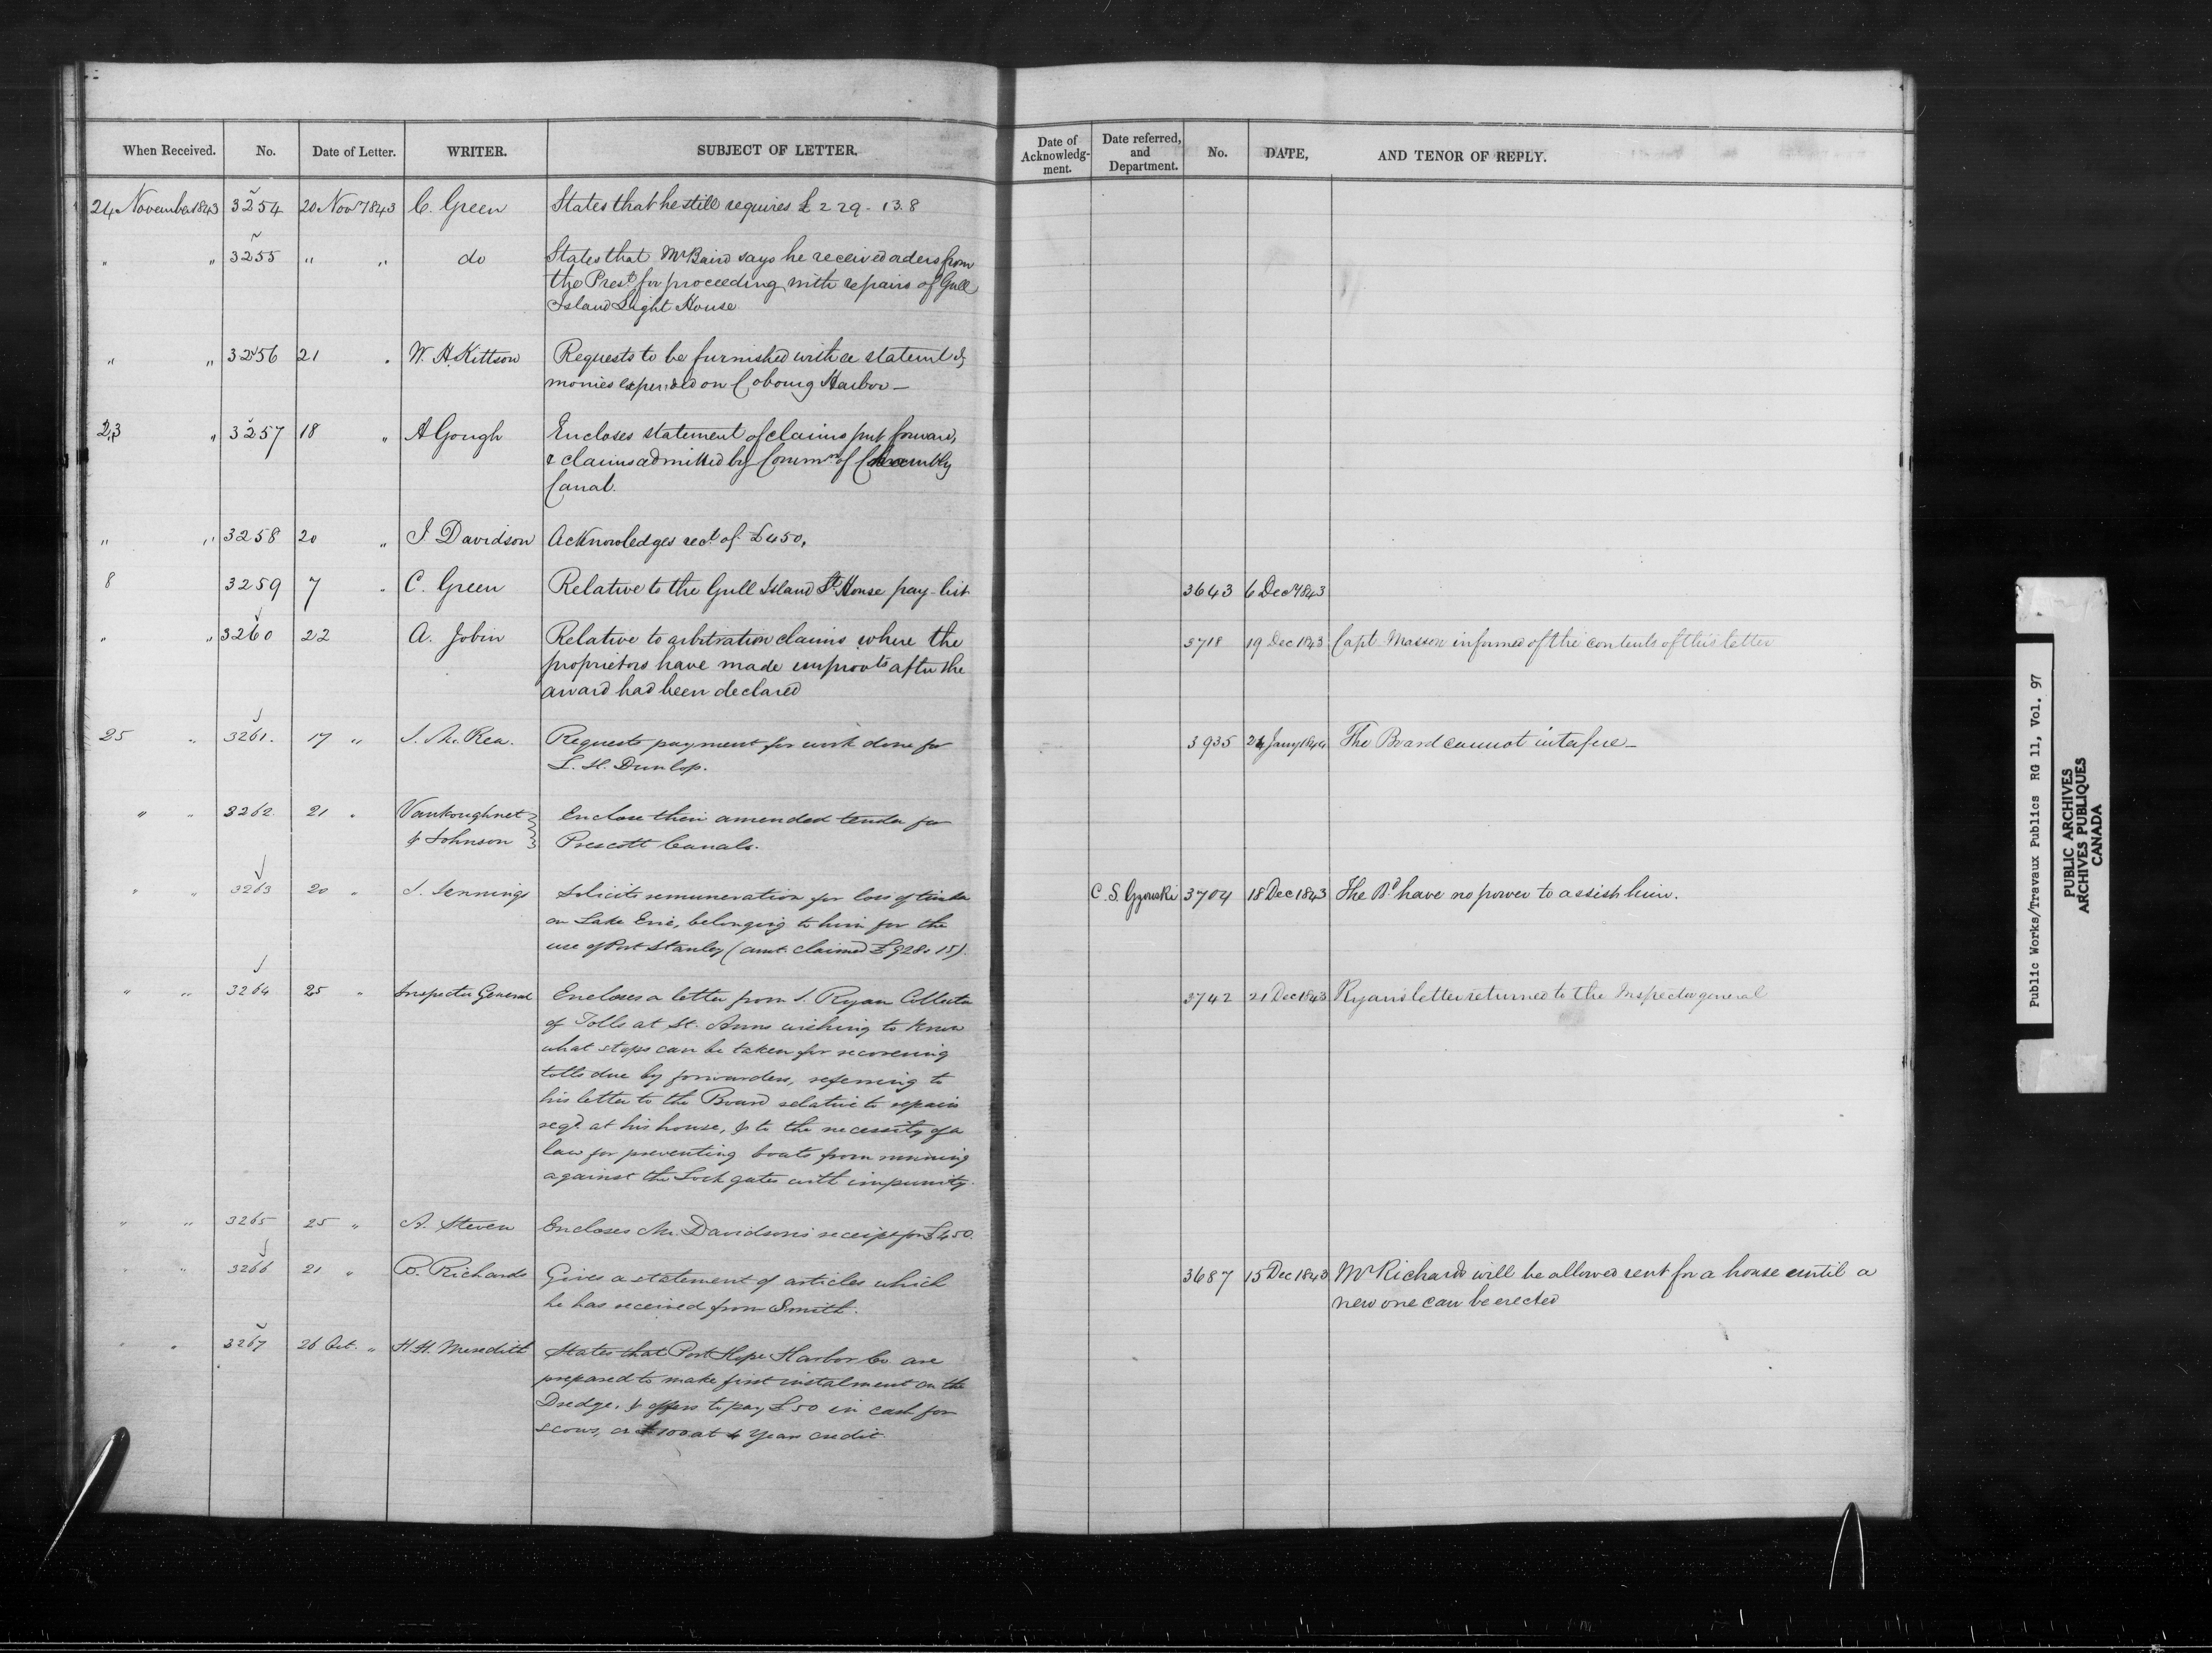 When Received. No. Date of Letter. WRITER. SUBJECT OF LETTER. Date of Acknowledg-ment. Date referred, and Department. No. DATE, AND TENOR OF REPLY.
24 November 1843 3254 20 Nov 1843 C. Green States that he still requires £229-13.8
" " 3255 " " do States that Mr Baird says he received orders from
the Prest for proceeding with repairs of Gull
Island Light House
" " 3256 21 " W. H. Kittson Requests to be furnished with a statemt of
monies expended on Cobourg Harbor—
23 " 3257 18 " A Gough Encloses statement of claims put forward,
& claims admitted by Commrs of Chambly
Canal.
" " 3258 20 " J Davidson Acknowledges rect of £450,
8 3259 7 " C. Green Relative to the Gull Island Lt House pay-list 3643 6 Decr 1843
" " 3260 22 A. Jobin Relative to arbitration claims where the 3718 19 Dec 1843 Capt Masson informed of the contents of this letter
proprietors have made improvts after the
award had been declared
25 " 3261. 17 " J. McRea. Requests payment for work done for 3935 24 Jany 1844 The Board cannot interfere—
L. H. Dunlop.
" " 3262 21 " Vankoughnet Enclose their amended tender for
& Johnson Prescott Canals.
" " 3263 20 " J. Jennings Solicits remuneration for loss of timber C. S. Gzowski 3704 18 Dec 1843 The Bd have no power to assist him.
on Lake Erie, belonging to him for the
use of Port Stanley (amt. claimed £928. 15).
" " 3264 25 " Inspector General Encloses a letter from J. Ryan Collector 3742 21 Dec 1843 Ryans letter returned to the Inspector general
of Tolls at St. Anns wishing to know
what steps can be taken for recovering
tolls due by forwarders, referring to
his letter to the Board relative to repairs
reqd at his house, & to the necessity of a
law for preventing boats from running
against the Lock gates with impunity.
" " 3265 25 " A. Steven Encloses Mr. Davidson's receipt for £450.
" " 3266 21 " B. Richards Gives a statement of articles which 3687 15 Dec 1843 Mr Richards will be allowed rent for a house until a
he has received from Smith. new one can be erected
" " 3267 26 Oct. " H. H. Meredith States that Port Hope Harbor Co are
prepared to make first instalment on the
Dredge, & offers to pay £50 in cash for
scows, or £100 at 4 years credit.
Public Works/Travaux Publics RG 11, Vol. 97
PUBLIC ARCHIVES
ARCHIVES PUBLIQUES
CANADA